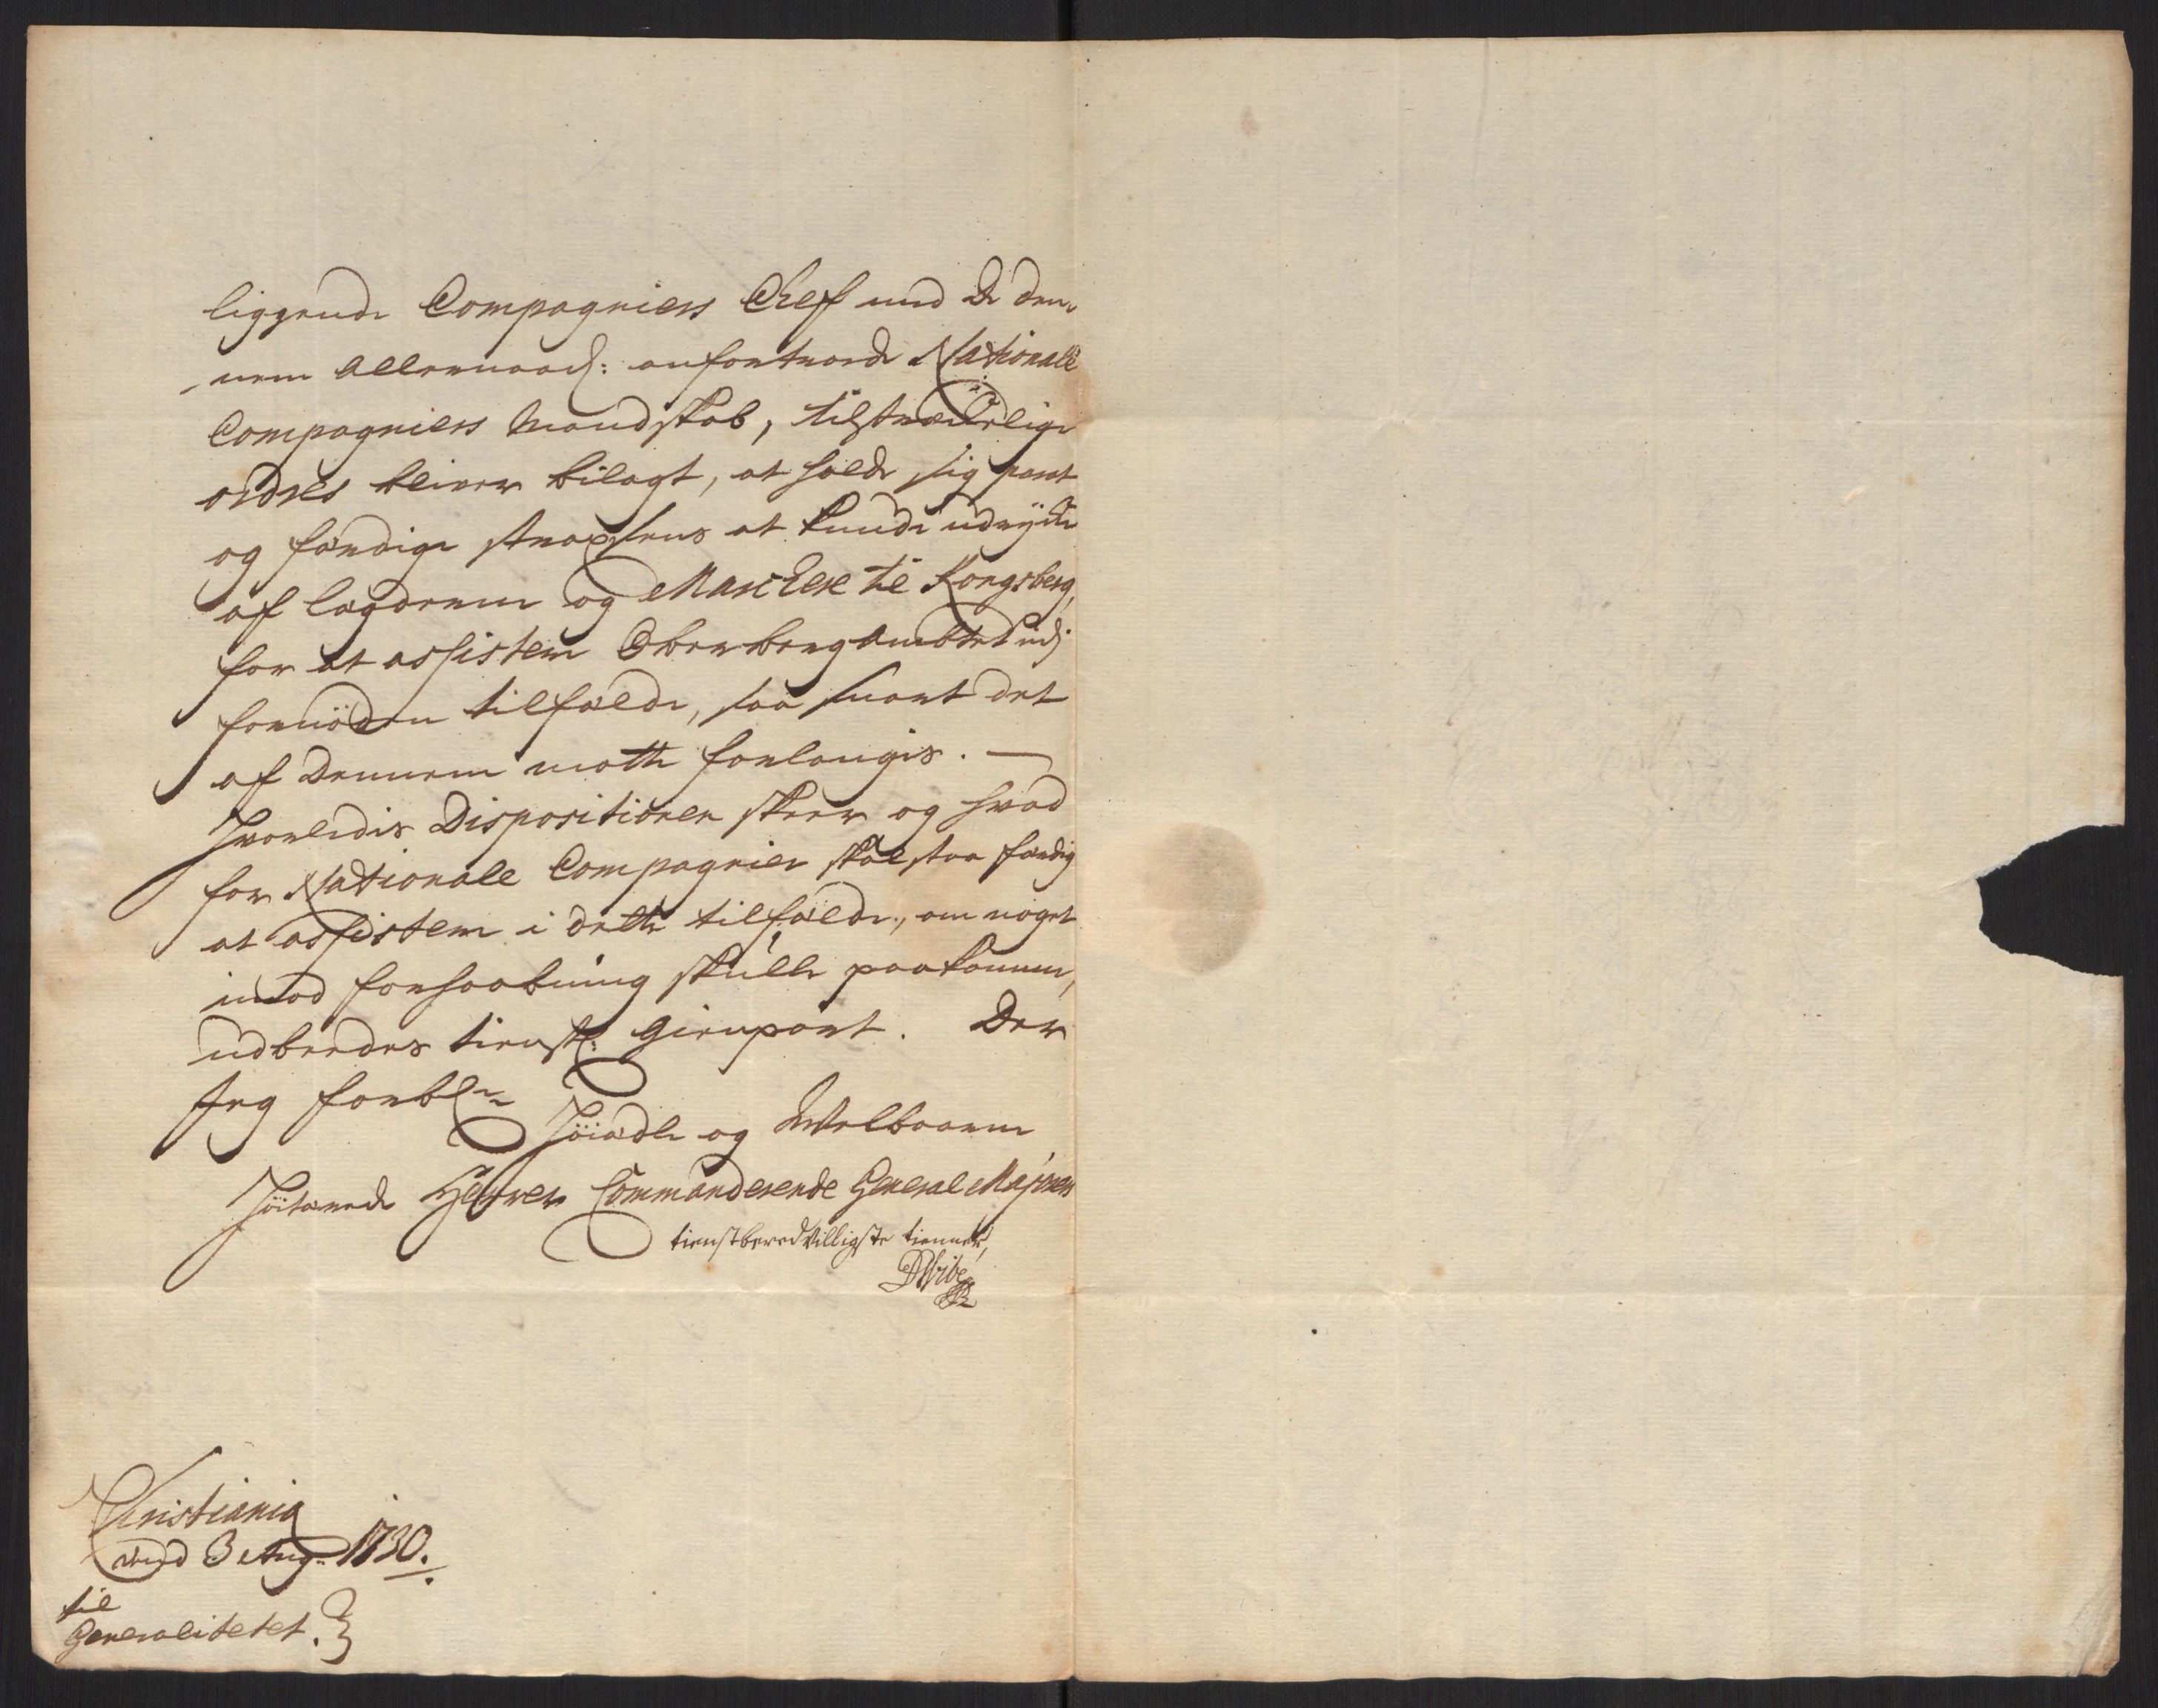 liggende Compagniers Chef med De den-
nem allernaad: anfortroede Nationale
Compagniers Mandskab, tilstreckelige
ordres bliver bilagt, at holde sig parat
og ferdige straxsens at kunde udrycke
af lægderne og Marchere til Kongsberg,
for at assistere OberbergAmbtet udj
fornöden tilfælde, saa snart det
af Dennem motte forlanges. —
Hvorledis Dispositionen skeer og hvad
for Nationale Compagnier skal staa ferdig
at assistere i dette tilfælde, om noget
imod forhaabning skulle paakomme,
udbeedes tienstl: gienpart. Der
Jeg forbl:r
Höiædle og Welbaarne
Höitærede Herrer Commanderende General Majorers
tienstberedvilligste tienner,
PWibe
Christiania
dend 3 Aug: 1730.
til
Generalitetet.